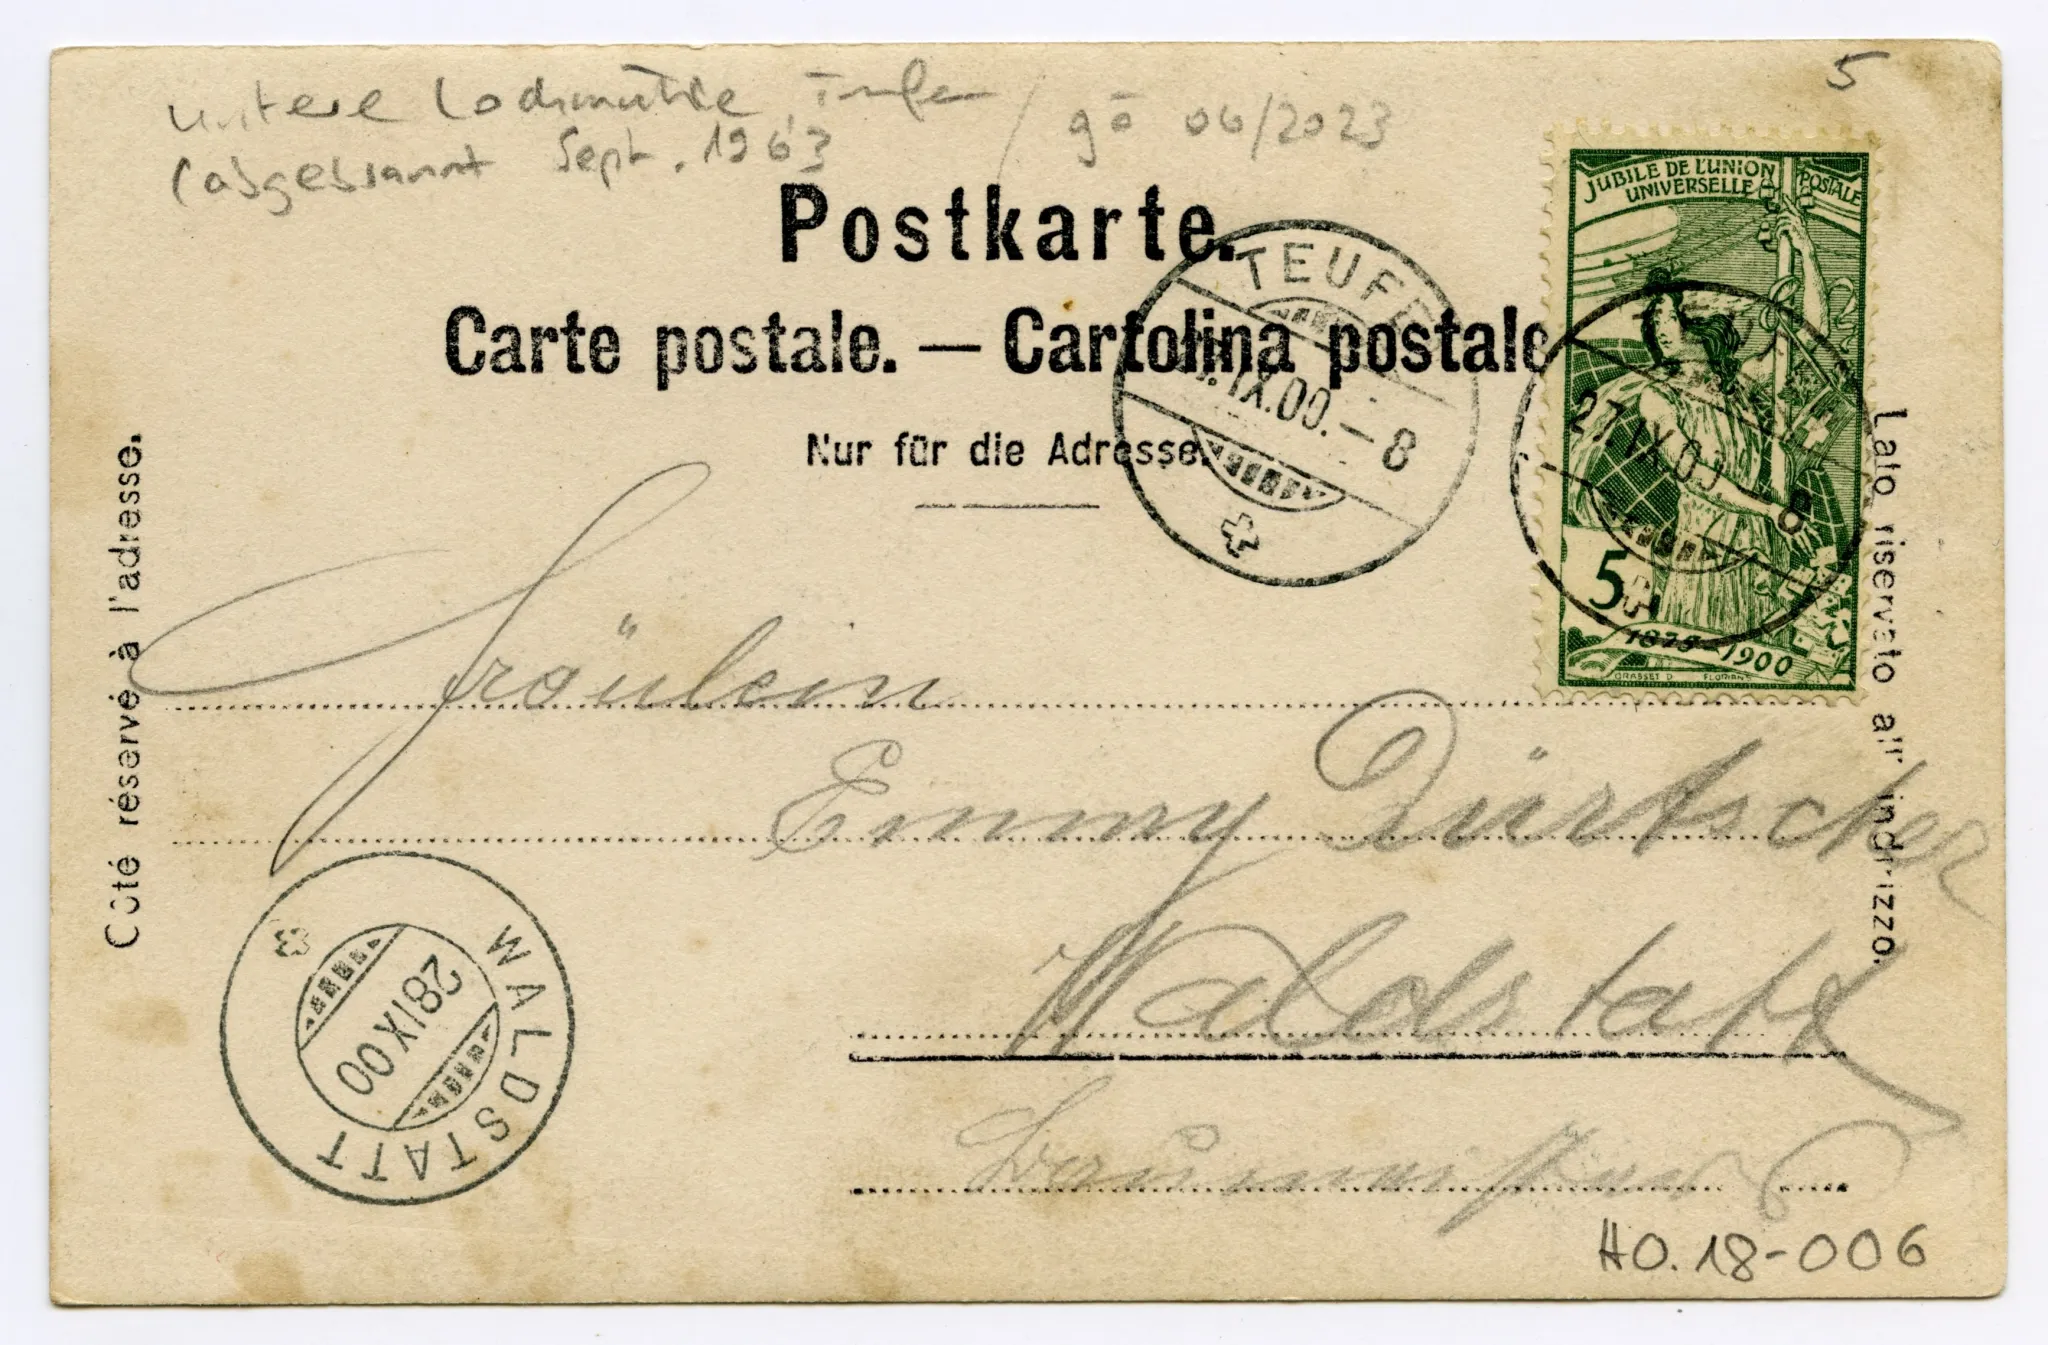 untere Lochmühle, Teufen / gö 06/2023
(abgebrannt Sept. 1963
5
Postkarte.
Carte postale. — Cartolina postale
Nur für die Adresse.
Côté réservé à l'adresse.
Lato riservato all' indirizzo.
JUBILÉ DE L'UNION POSTALE
UNIVERSELLE
5
1875-1900
GRASSET D. FLORIAN
TEUFEN
IX.00.-8
27.IX.00.-8
Fräulein
Emmy Dürtscher
Waldstatt
Baumeisters
WALDSTATT
28 IX 00
HO.18-006